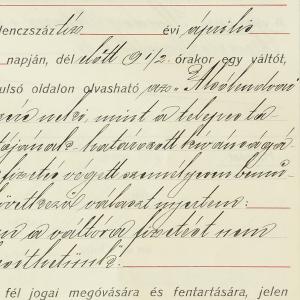 lenczszáz tíz évi április
napján, dél előtt 9 1/2 órakor egy váltót,
ulsó oldalon olvasható az
neki, mint a telepes ta
tójának határozott kívánságá
fizetés végett személyesen bemu
övetkező választ nyertem:
a váltóra fizetést nem
fél jogai megóvására és fentartására, jelen